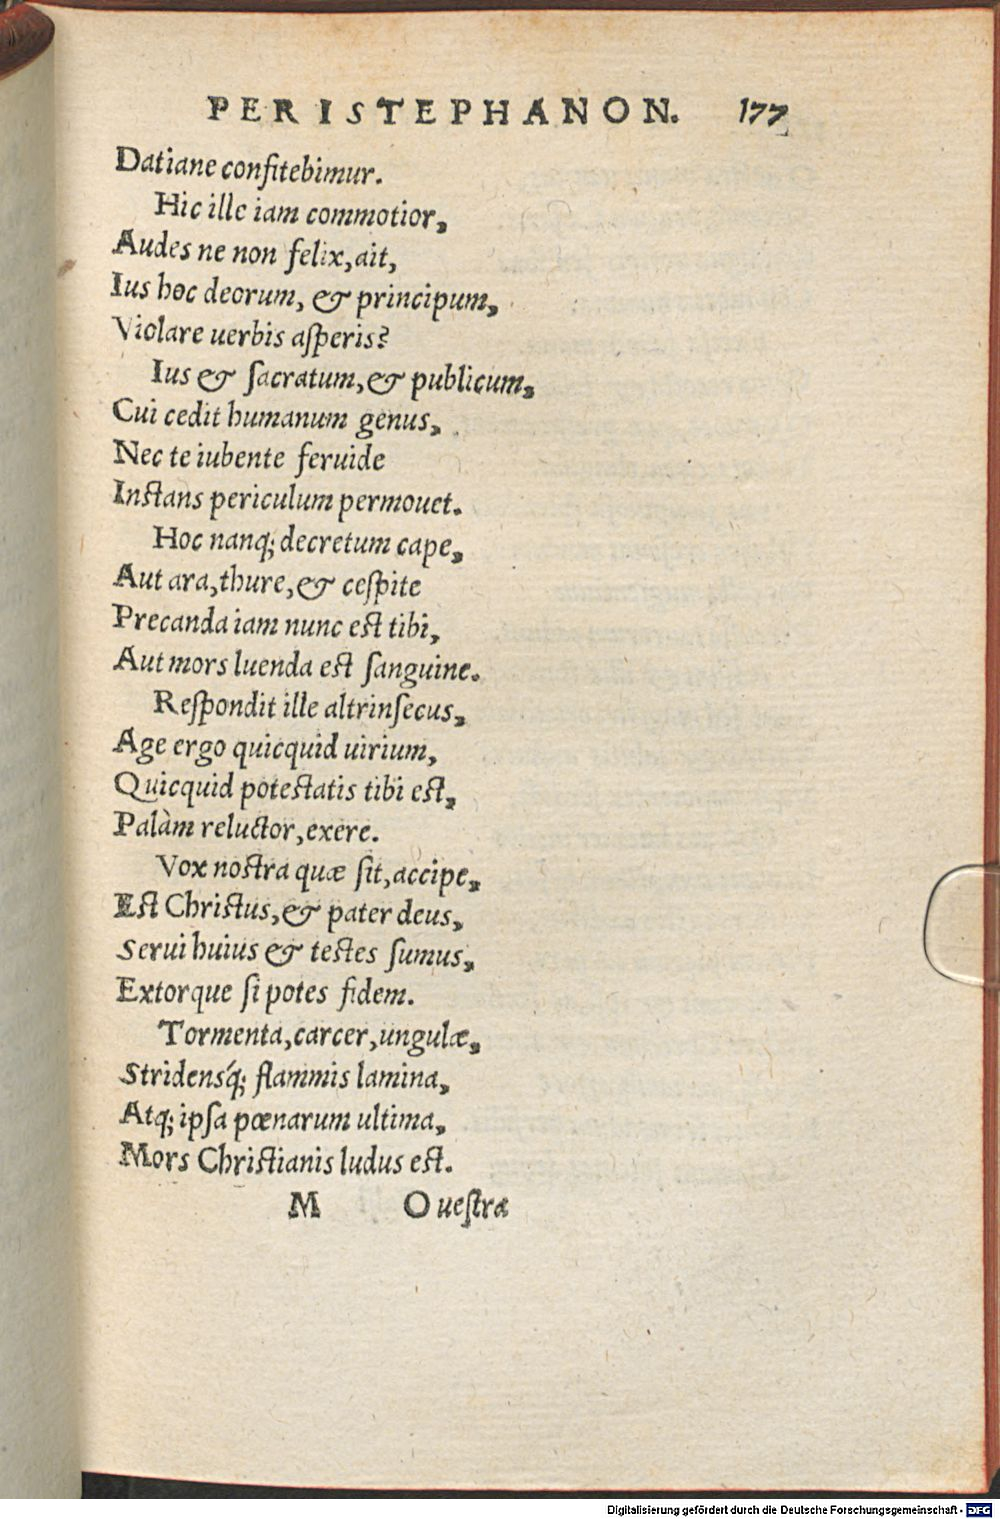 PERISTEPHANON. 177
Datiane confitebimur.
Hic ille iam commotior,
Audes ne non felix, ait,
Ius hoc deorum, & principum,
Violare uerbis aſperis?
Ius & ſacratum, & publicum,
Cui cedit humanum genus,
Nec te iubente feruide
Inſtans periculum permouet.
Hoc nanq; decretum cape,
Aut ara, thure, & ceſpite
Precanda iam nunc eſt tibi,
Aut mors luenda eſt ſanguine.
Reſpondit ille altrinſecus,
Age ergo quicquid uirium,
Quicquid poteſtatis tibi eſt,
Palàm reluctor, exere.
Vox noſtra quæ ſit, accipe,
Eſt Chriſtus, & pater deus,
Serui huius & teſtes ſumus,
Extorque ſi potes fidem.
Tormenta, carcer, ungulæ,
Stridensq́; flammis lamina,
Atq; ipſa pœnarum ultima,
Mors Chriſtianis ludus eſt.
M O ueſtra
Digitalisierung gefördert durch die Deutsche Forschungsgemeinschaft - DFG